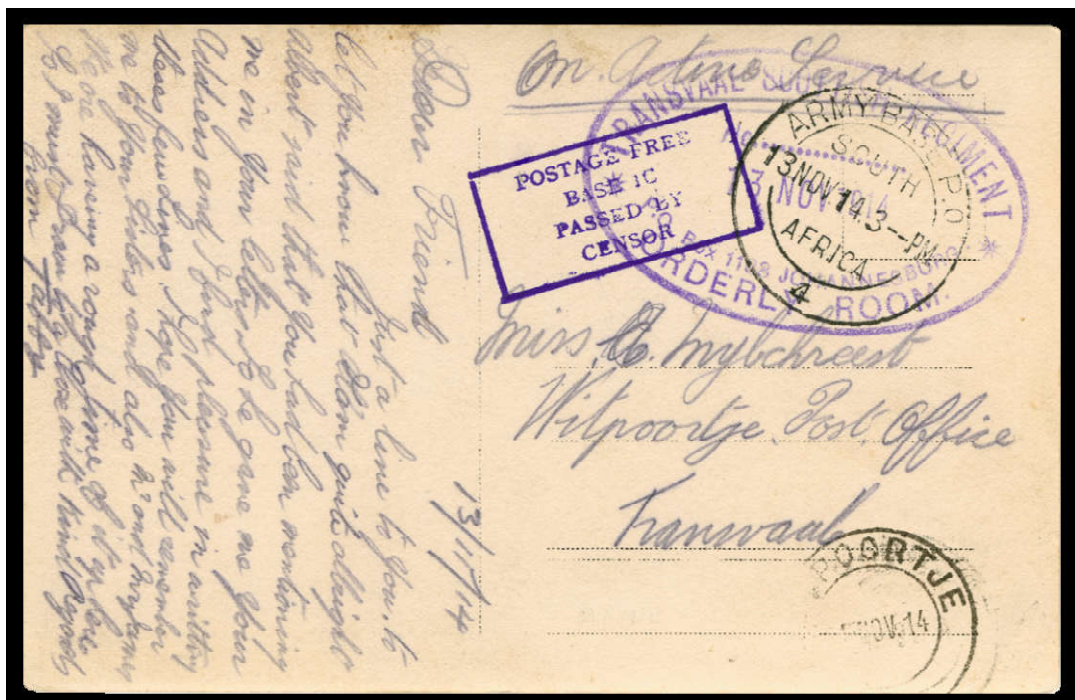 On. Active Service
TRANSVAAL SCOTTISH REGIMENT
No
13 NOV 1914
Box 1188 JOHANNESBURG
ORDERLY ROOM.
ARMY BASE P.O.
SOUTH
13 NOV 14. 3-- PM
AFRICA
4
POSTAGE FREE
BASE 1C
PASSED BY
CENSOR
Miss, E. Mylchreest
Witpoortje. Post. Office
Transvaal
POORTJE
NOV 14
13/11/14
Dear Friend
Just a line to you. to
let you know that I am quite allright
Albert said that you had been mentioning
me in your letters & he gave me your
Address and I find pleasure in writing
these few lines. Hope you will remember
me to your Sisters and also Mr and Mrs
We are having a rough time of it up here
So I must draw to a close with Kind Regards
from